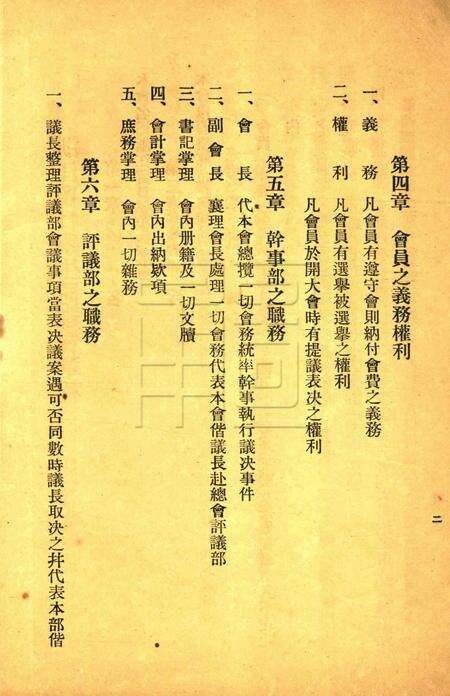 第四章　會員之義務權利
一、義　務　凡會員有遵守會則納付會費之義務
二、權　利　凡會員有選擧被選擧之權利
凡會員於開大會時有提議表决之權利
第五章　幹事部之職務
一、會　長　代本會總攬一切會務統率幹事執行議决事件
二、副會長　襄理會長處理一切會務代表本會偕議長赴總會評議部
三、書記掌理　會內册籍及一切文牘
四、會計掌理　會內出納欵項
五、庶務掌理　會內一切雜務
第六章　評議部之職務
一、議長整理評議部會議事項當表决議案遇可否同數時議長取决之幷代表本部偕
二